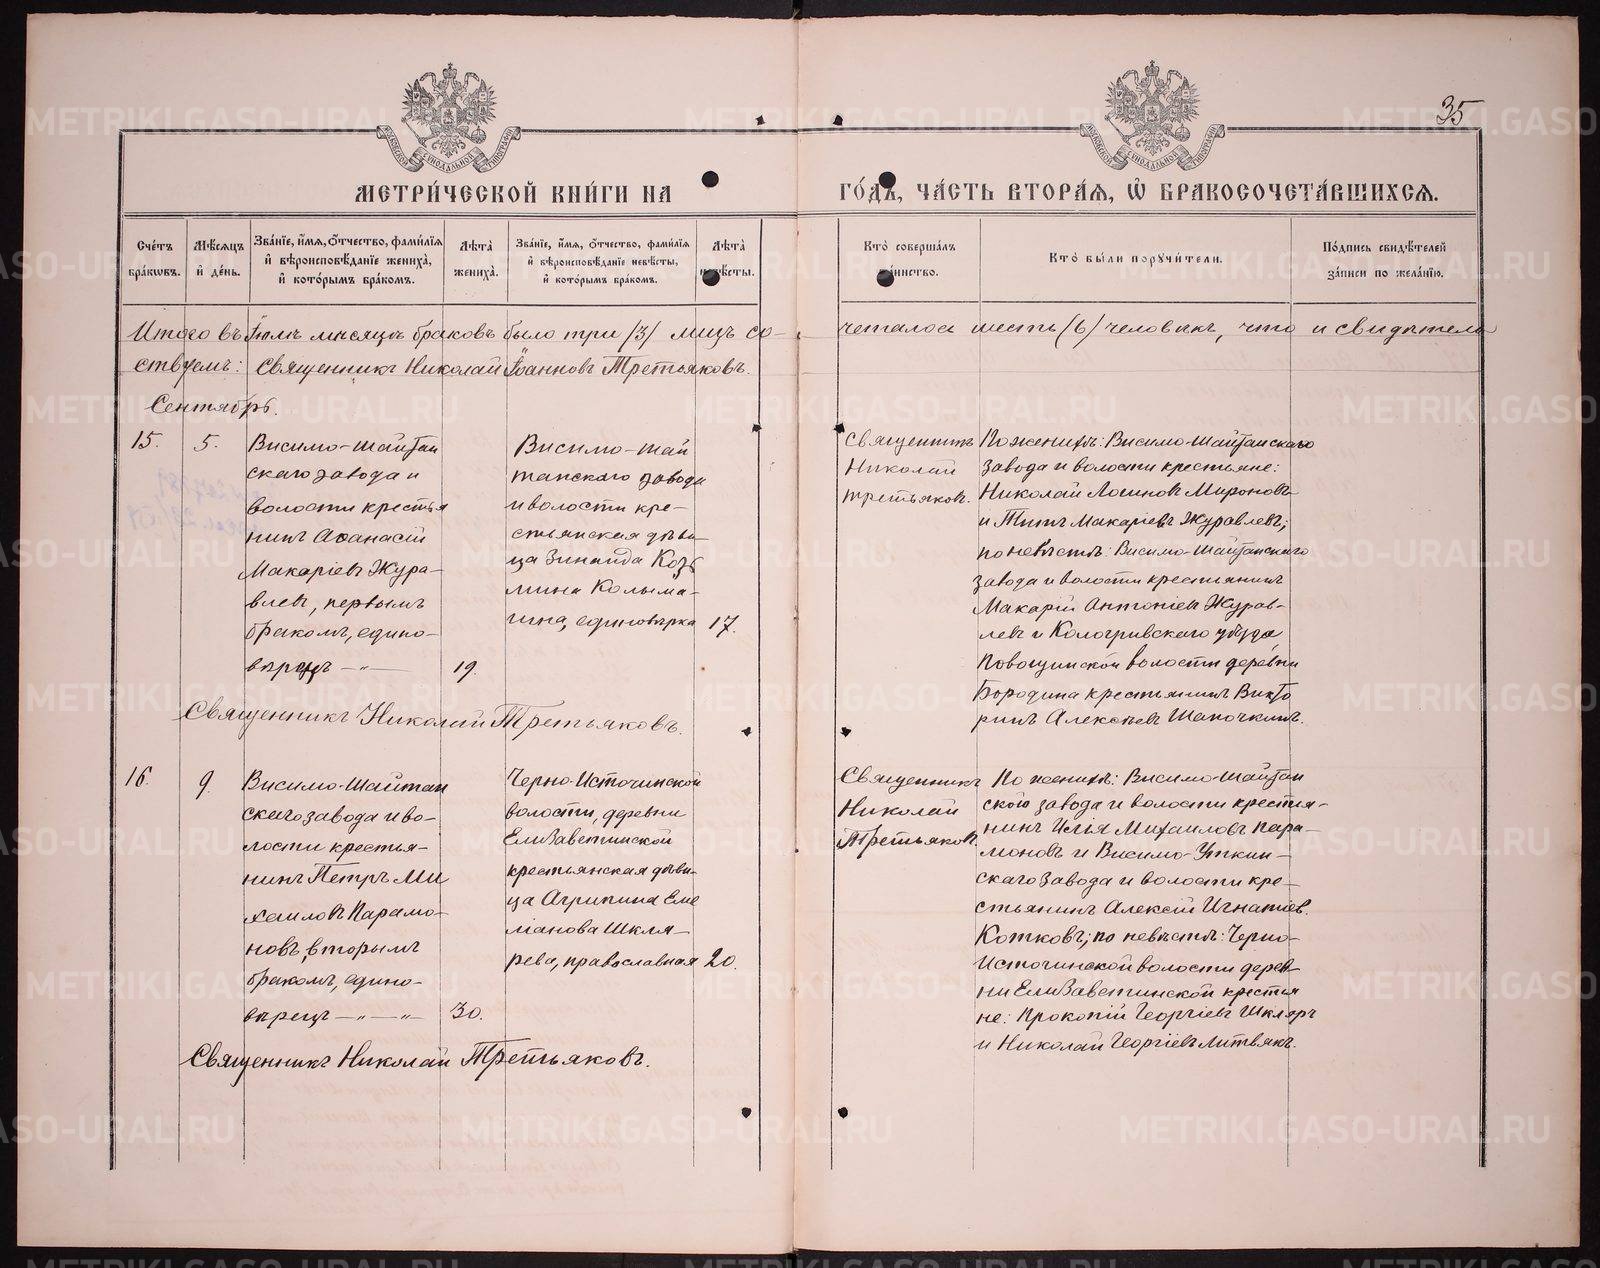 35
МЕТРИ́ЧЕСКОЙ КНИ́ГИ НА
ГО́ДЪ, ЧА́СТЬ ВТОРА́Я, Ѽ БРАКОСОЧЕТА́ВШИХСЯ.
Сче́тъ бра́кωвъ.
Мѣ́сяцъ и҆ де́нь.
Зва́нїе, и҆́мѧ, ѻ҆́тчество, фамѝлїѧ и҆ вѣроисповѣ́данїе жениха̀, и҆ кото́рымъ бра́комъ.
Лѣ́та жениха̀.
Зва́нїе, и҆́мѧ, ѻ҆́тчество, фамѝлїѧ и҆ вѣроисповѣ́данїе невѣ́сты, и҆ кото́рымъ бра́комъ.
Лѣ́та
Кто̀ соверша́лъ
Кто̀ бы́ли порꙋчи́тели.
По́дпись свидѣ́телей за́писи по жела́нїю.
Итого въ Іюлѣ мѣсяцѣ браковъ было три /3/ лицъ со-
четалось шесть (6) человѣкъ, что и свидѣтель
ствуетъ: Священникъ Николай Іоанновъ Третьяковъ.
Сентябрь.
15.
5.
Висимо-Шайтан
скаго завода и
волости крестья
нинъ Аѳанасій
Макаріевъ Жура-
влевъ, первымъ
бракомъ, едино-
вѣрецъ —„—
19.
Висимо-Шай
танскаго завода
и волости кре-
стьянская дѣви-
ца Зинаида Козь
мина Колыма-
гина, единовѣрка
17.
Священникъ
Николай
Третьяковъ.
По женихѣ: Висимо-Шайтанскаго
завода и волости крестьяне:
Николай Логиновъ Мироновъ
и Титъ Макаріевъ Журавлевъ;
по невѣстѣ: Висимо-Шайтанскаго
завода и волости крестьянинъ
Макарій Антоніевъ Журав-
левъ и Кологривскаго уѣзда
волости деревни
Бородина крестьянинъ Викто
ринъ Алексѣевъ Шапочкинъ.
Священникъ Николай Третьяковъ.
16.
9.
Висимо-Шайтан
скаго завода и во-
лости крестья-
нинъ Петръ Ми
хаиловъ Парамо-
новъ, вторымъ
бракомъ, едино-
вѣрецъ —„—„—
30.
Черно-Источинской
волости, деревни
Елизаветинской
крестьянская дѣви-
ца Агрипина Еме
ліанова Шкля-
рева, православная
20.
Священникъ
Николай
Третьяковъ.
По женихѣ: Висимо-Шайтан
скаго завода и волости крестья-
нинъ Илья Михаиловъ Пара-
моновъ и Висимо-Уткин-
скаго завода и волости кре-
стьянинъ Алексій Игнатіев.
Котковъ; по невѣстѣ: Черно-
Источинской волости дерев
ни Елизаветинской крестья
не: Прокопій Георгіевъ Шкляръ
и Николай Георгіевъ Литвякъ.
Священникъ Николай Третьяковъ.
METRIKI.GASO-URAL.RU